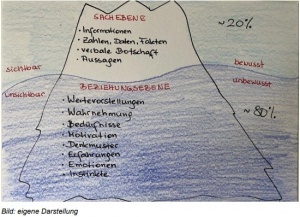 SACHEBENE
~20%
• Informationen
• Zahlen, Daten, Fakten
• verbale Botschaft
• Aussagen
sichtbar
bewusst
unsichtbar
BEZIEHUNGSEBENE
unbewusst
• Wertevorstellungen
• Wahrnehmung
• Bedürfnisse
~80%
• Motivation
• Denkmuster
• Erfahrungen
• Emotionen
• Instinkte
Bild: eigene Darstellung